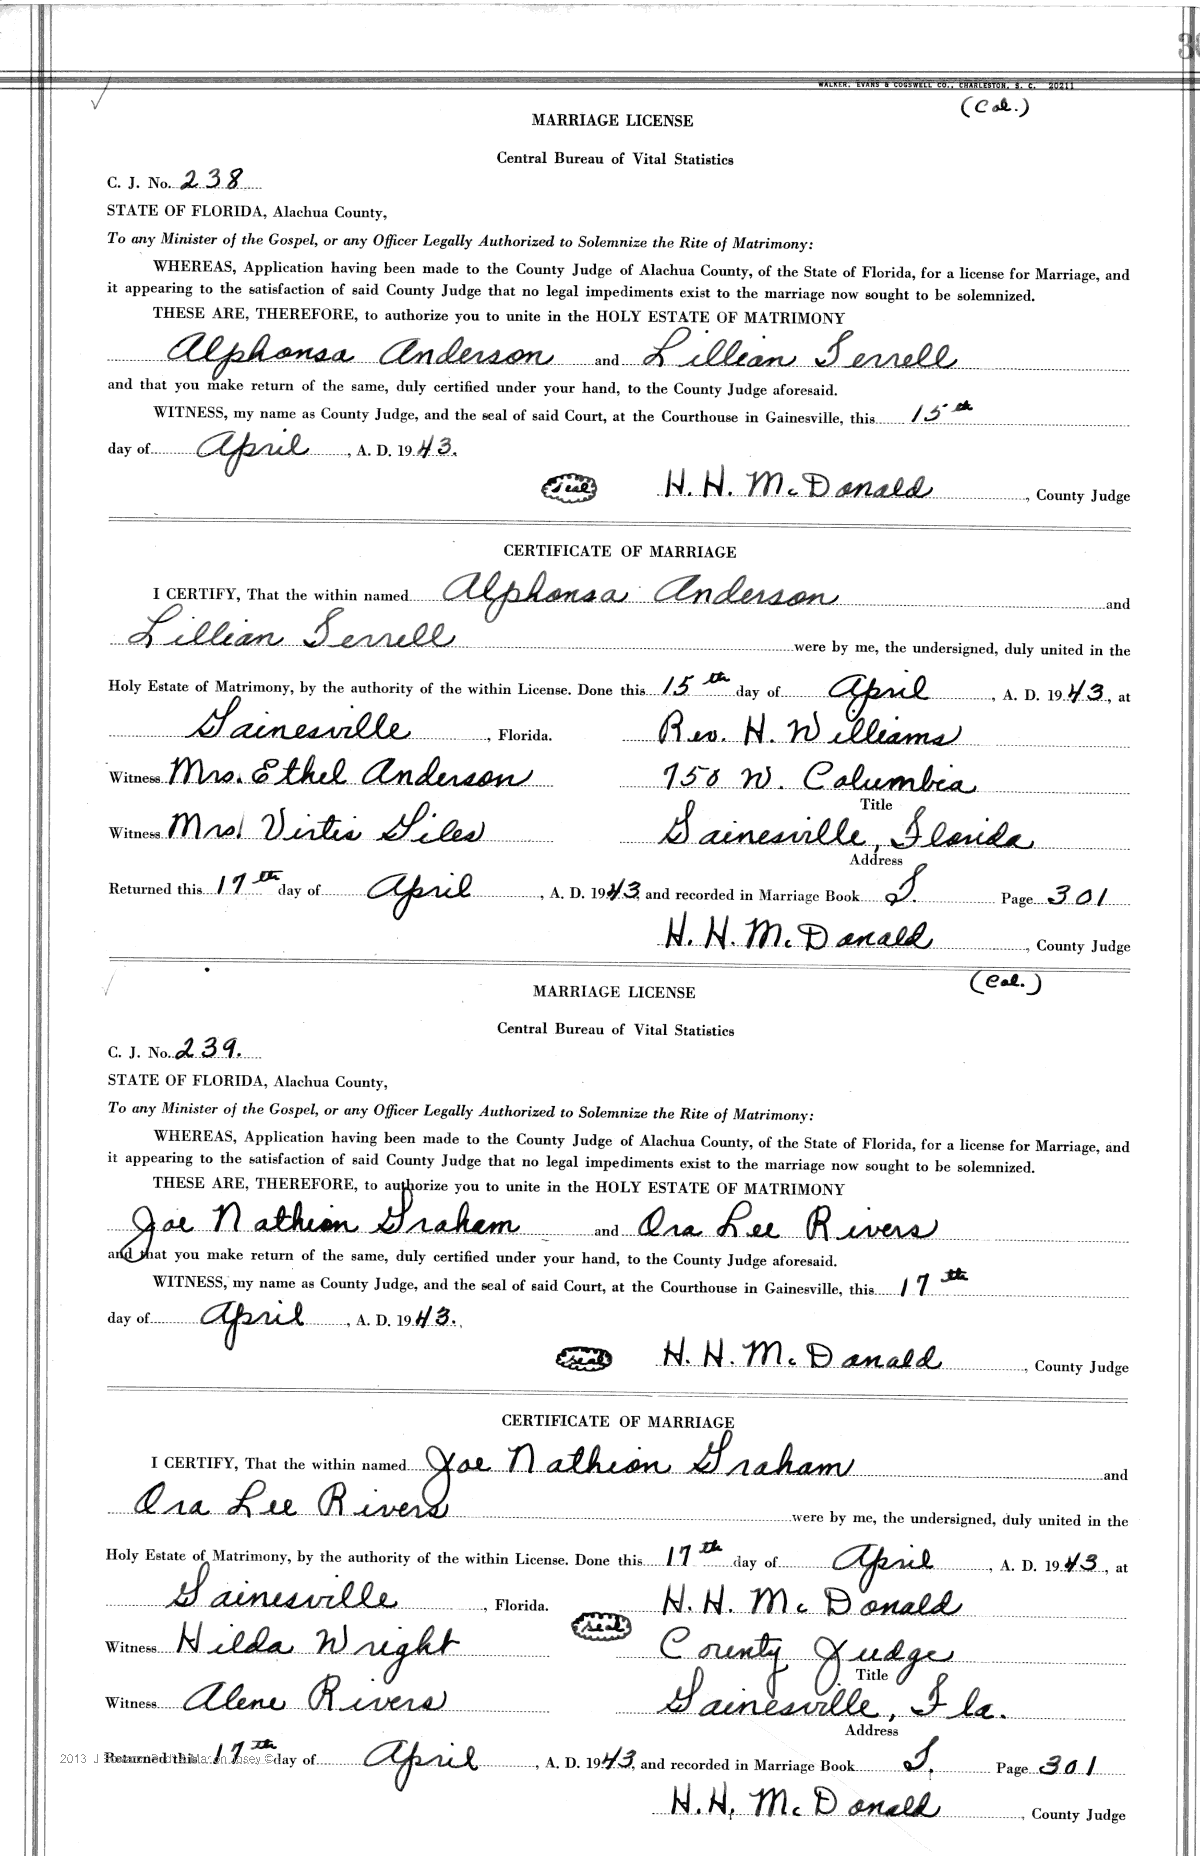 WALKER, EVANS & COGSWELL CO., CHARLESTON, S. C. 20211
(Col.)
MARRIAGE LICENSE
Central Bureau of Vital Statistics
C. J. No. 238
STATE OF FLORIDA, Alachua County,
To any Minister of the Gospel, or any Officer Legally Authorized to Solemnize the Rite of Matrimony:
WHEREAS, Application having been made to the County Judge of Alachua County, of the State of Florida, for a license for Marriage, and
it appearing to the satisfaction of said County Judge that no legal impediments exist to the marriage now sought to be solemnized.
THESE ARE, THEREFORE, to authorize you to unite in the HOLY ESTATE OF MATRIMONY
Alphonsa Anderson and Lillian Terrell
and that you make return of the same, duly certified under your hand, to the County Judge aforesaid.
WITNESS, my name as County Judge, and the seal of said Court, at the Courthouse in Gainesville, this 15th
day of April, A. D. 1943.
seal H. H. McDonald, County Judge
CERTIFICATE OF MARRIAGE
I CERTIFY, That the within named Alphonsa Anderson and
Lillian Terrell were by me, the undersigned, duly united in the
Holy Estate of Matrimony, by the authority of the within License. Done this 15th day of April, A. D. 1943, at
Gainesville, Florida. Rev. H. Williams
Witness Mrs. Ethel Anderson 750 W. Columbia
Title
Witness Mrs. Virtis Giles Gainesville, Florida
Address
Returned this 17th day of April, A. D. 1943, and recorded in Marriage Book T. Page 301
H. H. McDonald, County Judge
(Col.)
MARRIAGE LICENSE
Central Bureau of Vital Statistics
C. J. No. 239.
STATE OF FLORIDA, Alachua County,
To any Minister of the Gospel, or any Officer Legally Authorized to Solemnize the Rite of Matrimony:
WHEREAS, Application having been made to the County Judge of Alachua County, of the State of Florida, for a license for Marriage, and
it appearing to the satisfaction of said County Judge that no legal impediments exist to the marriage now sought to be solemnized.
THESE ARE, THEREFORE, to authorize you to unite in the HOLY ESTATE OF MATRIMONY
Joe Nathion Graham and Ora Lee Rivers
and that you make return of the same, duly certified under your hand, to the County Judge aforesaid.
WITNESS, my name as County Judge, and the seal of said Court, at the Courthouse in Gainesville, this 17th
day of April, A. D. 1943.
seal H. H. McDonald, County Judge
CERTIFICATE OF MARRIAGE
I CERTIFY, That the within named Joe Nathion Graham and
Ora Lee Rivers were by me, the undersigned, duly united in the
Holy Estate of Matrimony, by the authority of the within License. Done this 17th day of April, A. D. 1943, at
Gainesville, Florida. seal H. H. McDonald
Witness Hilda Wright County Judge
Title
Witness Alene Rivers Gainesville, Fla.
Address
2013 Returned this 17th day of April, A. D. 1943, and recorded in Marriage Book T. Page 301
H. H. McDonald, County Judge